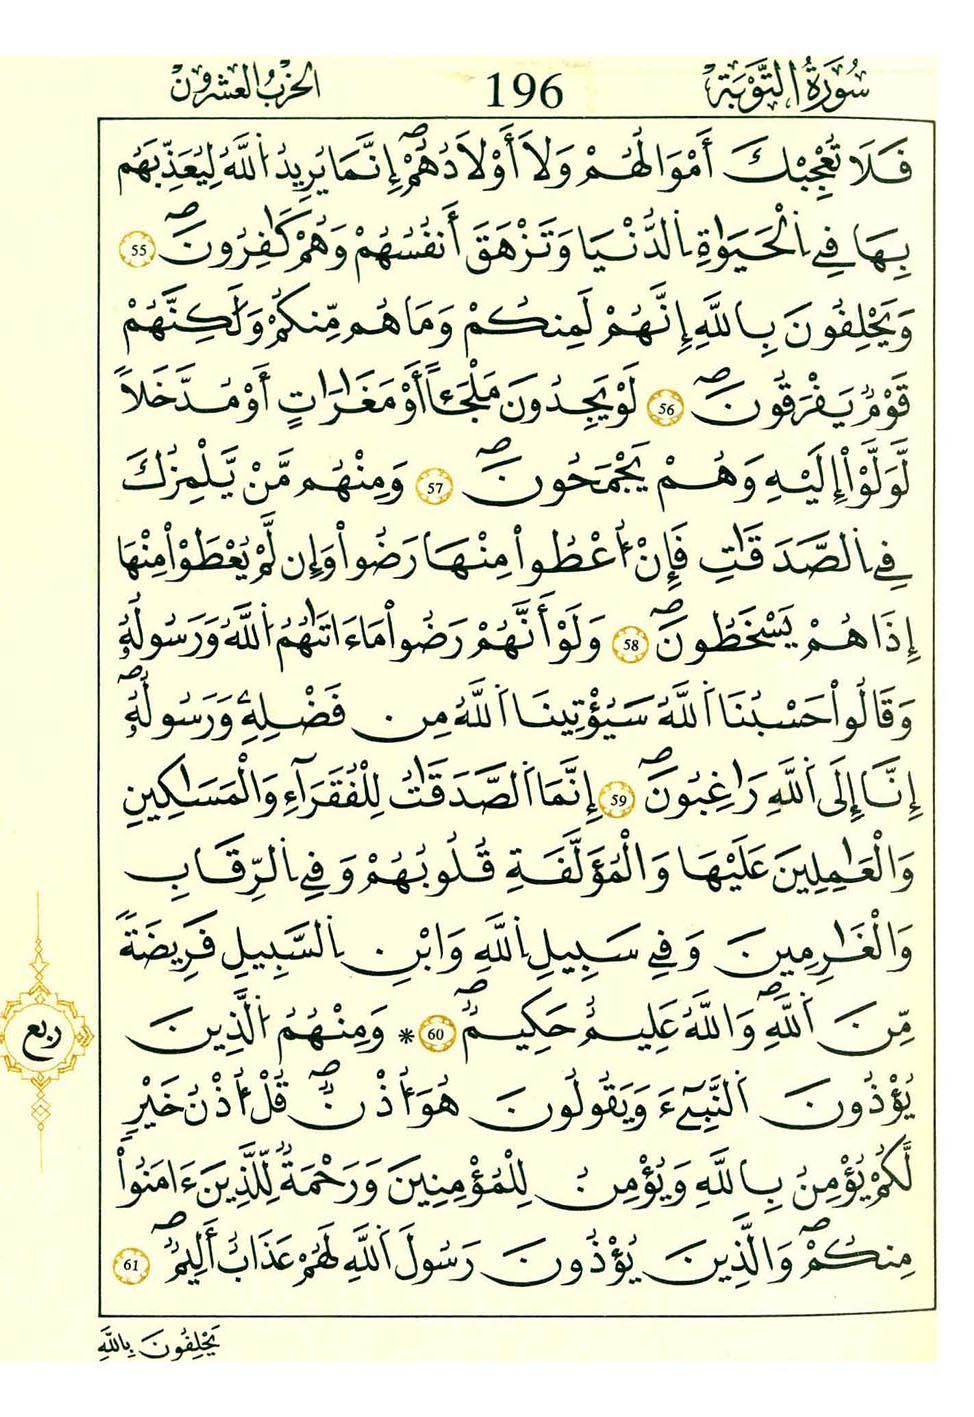 سُورَةُ التَّوْبَةِ 196 الحِزْبُ العِشْرُونَ
فَلَا تُعْجِبْكَ أَمْوَالُهُمْ وَلَا أَوْلَادُهُمْ إِنَّمَا يُرِيدُ اللَّهُ لِيُعَذِّبَهُم
بِهَا فِي الْحَيَوٰةِ الدُّنْيَا وَتَزْهَقَ أَنفُسُهُمْ وَهُمْ كَٰفِرُونَ 55
وَيَحْلِفُونَ بِاللَّهِ إِنَّهُمْ لَمِنكُمْ وَمَا هُم مِّنكُمْ وَلَٰكِنَّهُمْ
قَوْمٌ يَفْرَقُونَ 56 لَوْ يَجِدُونَ مَلْجَـًٔا أَوْ مَغَٰرَٰتٍ أَوْ مُدَّخَلًا
لَّوَلَّوْا إِلَيْهِ وَهُمْ يَجْمَحُونَ 57 وَمِنْهُم مَّنْ يَّلْمِزُكَ
فِي الصَّدَقَٰتِ فَإِنْ أُعْطُوا مِنْهَا رَضُوا وَإِن لَّمْ يُعْطَوْا مِنْهَا
إِذَا هُمْ يَسْخَطُونَ 58 وَلَوْ أَنَّهُمْ رَضُوا مَا ءَاتَىٰهُمُ اللَّهُ وَرَسُولُهُ
وَقَالُوا حَسْبُنَا اللَّهُ سَيُؤْتِينَا اللَّهُ مِن فَضْلِهِ وَرَسُولُهُ
إِنَّا إِلَى اللَّهِ رَٰغِبُونَ 59 إِنَّمَا الصَّدَقَٰتُ لِلْفُقَرَآءِ وَالْمَسَٰكِينِ
وَالْعَٰمِلِينَ عَلَيْهَا وَالْمُؤَلَّفَةِ قُلُوبُهُمْ وَفِي الرِّقَابِ
وَالْغَٰرِمِينَ وَفِي سَبِيلِ اللَّهِ وَابْنِ السَّبِيلِ فَرِيضَةً
مِّنَ اللَّهِ وَاللَّهُ عَلِيمٌ حَكِيمٌ 60 * وَمِنْهُمُ الَّذِينَ
يُؤْذُونَ النَّبِيٓءَ وَيَقُولُونَ هُوَ أُذْنٌ قُلْ أُذْنُ خَيْرٍ
لَّكُمْ يُؤْمِنُ بِاللَّهِ وَيُؤْمِنُ لِلْمُؤْمِنِينَ وَرَحْمَةٌ لِّلَّذِينَ ءَامَنُوا
مِنكُمْ وَالَّذِينَ يُؤْذُونَ رَسُولَ اللَّهِ لَهُمْ عَذَابٌ أَلِيمٌ 61
ربع
يَحْلِفُونَ بِاللَّهِ